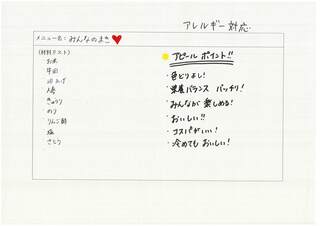 アレルギー対応
メニュー名: みんなのまき
(材料リスト)
お米
牛肉
油あげ
人参
きゅうり
のり
りんご酢
塩
さとう
アピールポイント!!
・彩どりよし!
・栄養バランス バッチリ!
・みんなが楽しめる!
・おいしい!!
・コスパがいい!
・冷めても おいしい!